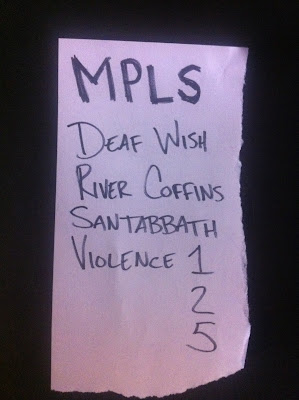 MPLS
DEAF WISH
RIVER COFFINS
SANTABBATH
VIOLENCE 1
2
5